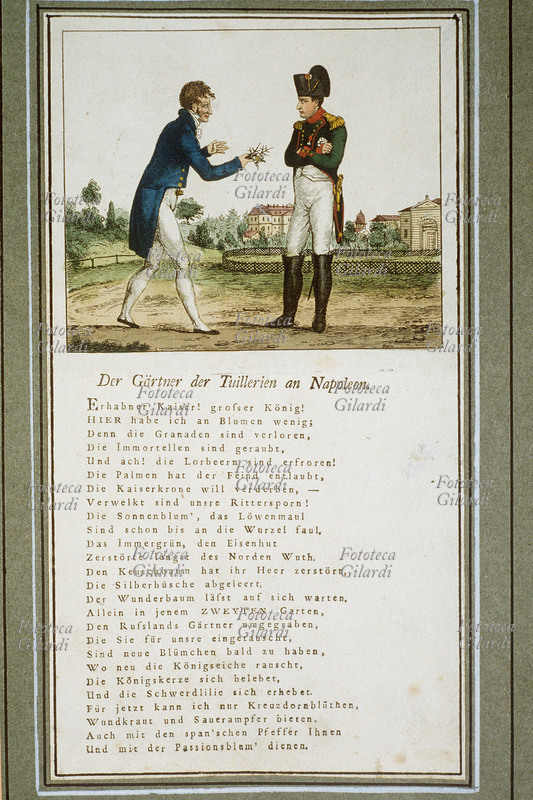 Fototeca Gilardi
Der Gärtner der Tuillerien an Napoleon.
Erhabner Kaiser! groſser König!
HIER habe ich an Blumen wenig;
Denn die Granaden sind verloren,
Die Immortellen sind geraubt,
Und ach! die Lorbeern sind erfroren!
Die Palmen hat der Feind entlaubt,
Die Kaiserkrone will verderben, —
Verwelkt sind unsre Rittersporn!
Die Sonnenblum', das Löwenmaul
Sind schon bis an die Wurzel faul,
Das Immergrün, den Eisenhut
Zerstörte längst des Norden Wuth.
Den hat ihr Heer zerstört,
Die Silberbüsche abgeleert.
Der Wunderbaum läſst auf sich warten.
Allein in jenem ZWEYTEN Garten,
Den Ruſslands Gärtner umgegraben,
Die Sie für unsre eingetauscht,
Sind neue Blümchen bald zu haben,
Wo neu die Königseiche rauscht,
Die Königskerze sich belebet,
Und die Schwerdlilie sich erhebet.
Für jetzt kann ich nur Kreuzdornblüthen,
Wundkraut und Sauerampfer bieten.
Auch mit den span'schen Pfeffer Ihnen
Und mit der Passionsblum' dienen.